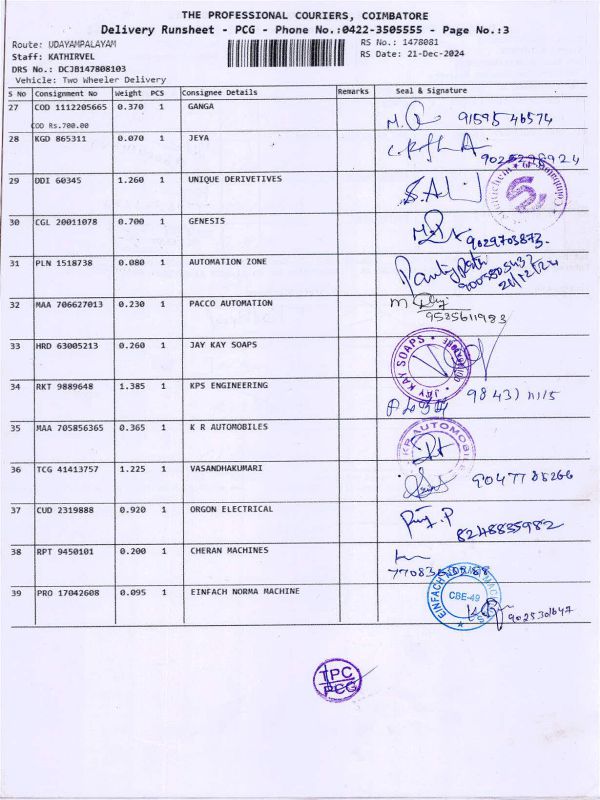 THE PROFESSIONAL COURIERS, COIMBATORE
Delivery Runsheet - PCG - Phone No.:0422-3505555 - Page No.:3
Route: UDAYAMPALAYAM RS No.: 1478081
Staff: KATHIRVEL RS Date: 21-Dec-2024
DRS No.: DCJB147808103
Vehicle: Two Wheeler Delivery
S No Consignment No Weight PCS Consignee Details Remarks Seal & Signature
27 COD 1112205665 0.370 1 GANGA
COD Rs.700.00 91595 46574
28 KGD 865311 0.070 1 JEYA
29 DDI 60345 1.260 1 UNIQUE DERIVETIVES
30 CGL 20011078 0.700 1 GENESIS
9029703873.
31 PLN 1518738 0.080 1 AUTOMATION ZONE
21/12/24
32 MAA 706627013 0.230 1 PACCO AUTOMATION
9535611983
33 HRD 63005213 0.260 1 JAY KAY SOAPS
JAY KAY SOAPS
34 RKT 9889648 1.385 1 KPS ENGINEERING
35 MAA 705856365 0.365 1 K R AUTOMOBILES
KR AUTOMOBILE
36 TCG 41413757 1.225 1 VASANDHAKUMARI
9047785266
37 CUD 2319888 0.920 1 ORGON ELECTRICAL
8248835982
38 RPT 9450101 0.200 1 CHERAN MACHINES
39 PRO 17042608 0.095 1 EINFACH NORMA MACHINE
EINFACH NORMA MACHINES
CBE-49
9025301647
TPC
PCG